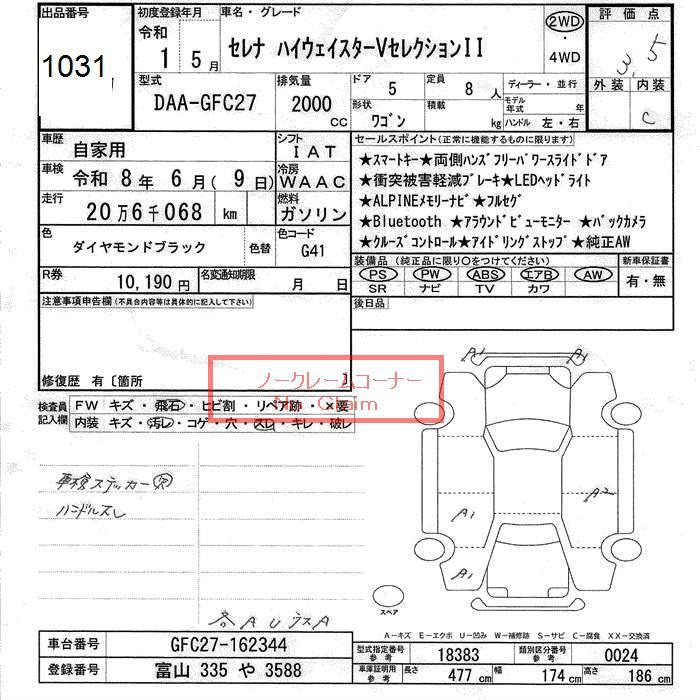 出品番号
1031
初度登録年月
令和
1 5月
車名・グレード
セレナ ハイウェイスターVセレクションII
2WD
・
4WD
評価点
3.5
外装 内装
C
型式
DAA-GFC27
排気量
2000
CC
ドア
5
定員
8 人
ディーラー・並行
形状
ワゴン
積載
kg
モデル年式 年
ハンドル 左・右
車歴
自家用
シフト
IAT
車検
令和 8年 6月( 9日)
冷房
WAAC
走行
20万6千068 km
燃料
ガソリン
色
ダイヤモンドブラック
色替
色コード
G41
R券
10,190円
名変通知期限
月 日
セールスポイント(正常に機能するものに限ります)
★スマートキー★両側ハンズフリーパワースライドドア
★衝突被害軽減ブレーキ★LEDヘッドライト
★ALPINEメモリーナビ★フルセグ
★Bluetooth ★アラウンドビューモニター ★バックカメラ
★クルーズコントロール★アイドリングストップ★純正AW
装備品(純正品に限り○をつけてください)
PS PW ABS エアB AW
SR ナビ TV カワ
新車保証書
有・無
後日品
注意事項申告欄(不具合内容等は具体的に記入して下さい)
修復歴 有〔箇所 〕
ノークレームコーナー
No Claim
検査員
記入欄
FW キズ・飛石・ヒビ割・リペア跡・×要
内装 キズ・汚レ・コゲ・穴・スレ・キレ・破レ
車検ステッカー穴
ハンドルスレ
A1 A1
A1
A2
A1
スペア
A-キズ E-エクボ U-凹み W-補修跡 S-サビ C-腐食 XX-交換済
車台番号
GFC27-162344
登録番号
富山 335 や 3588
型式指定番号
参考
18383
類別区分番号
参考
0024
車庫証明用
参考
長さ
477 cm
幅
174 cm
高さ
186 cm